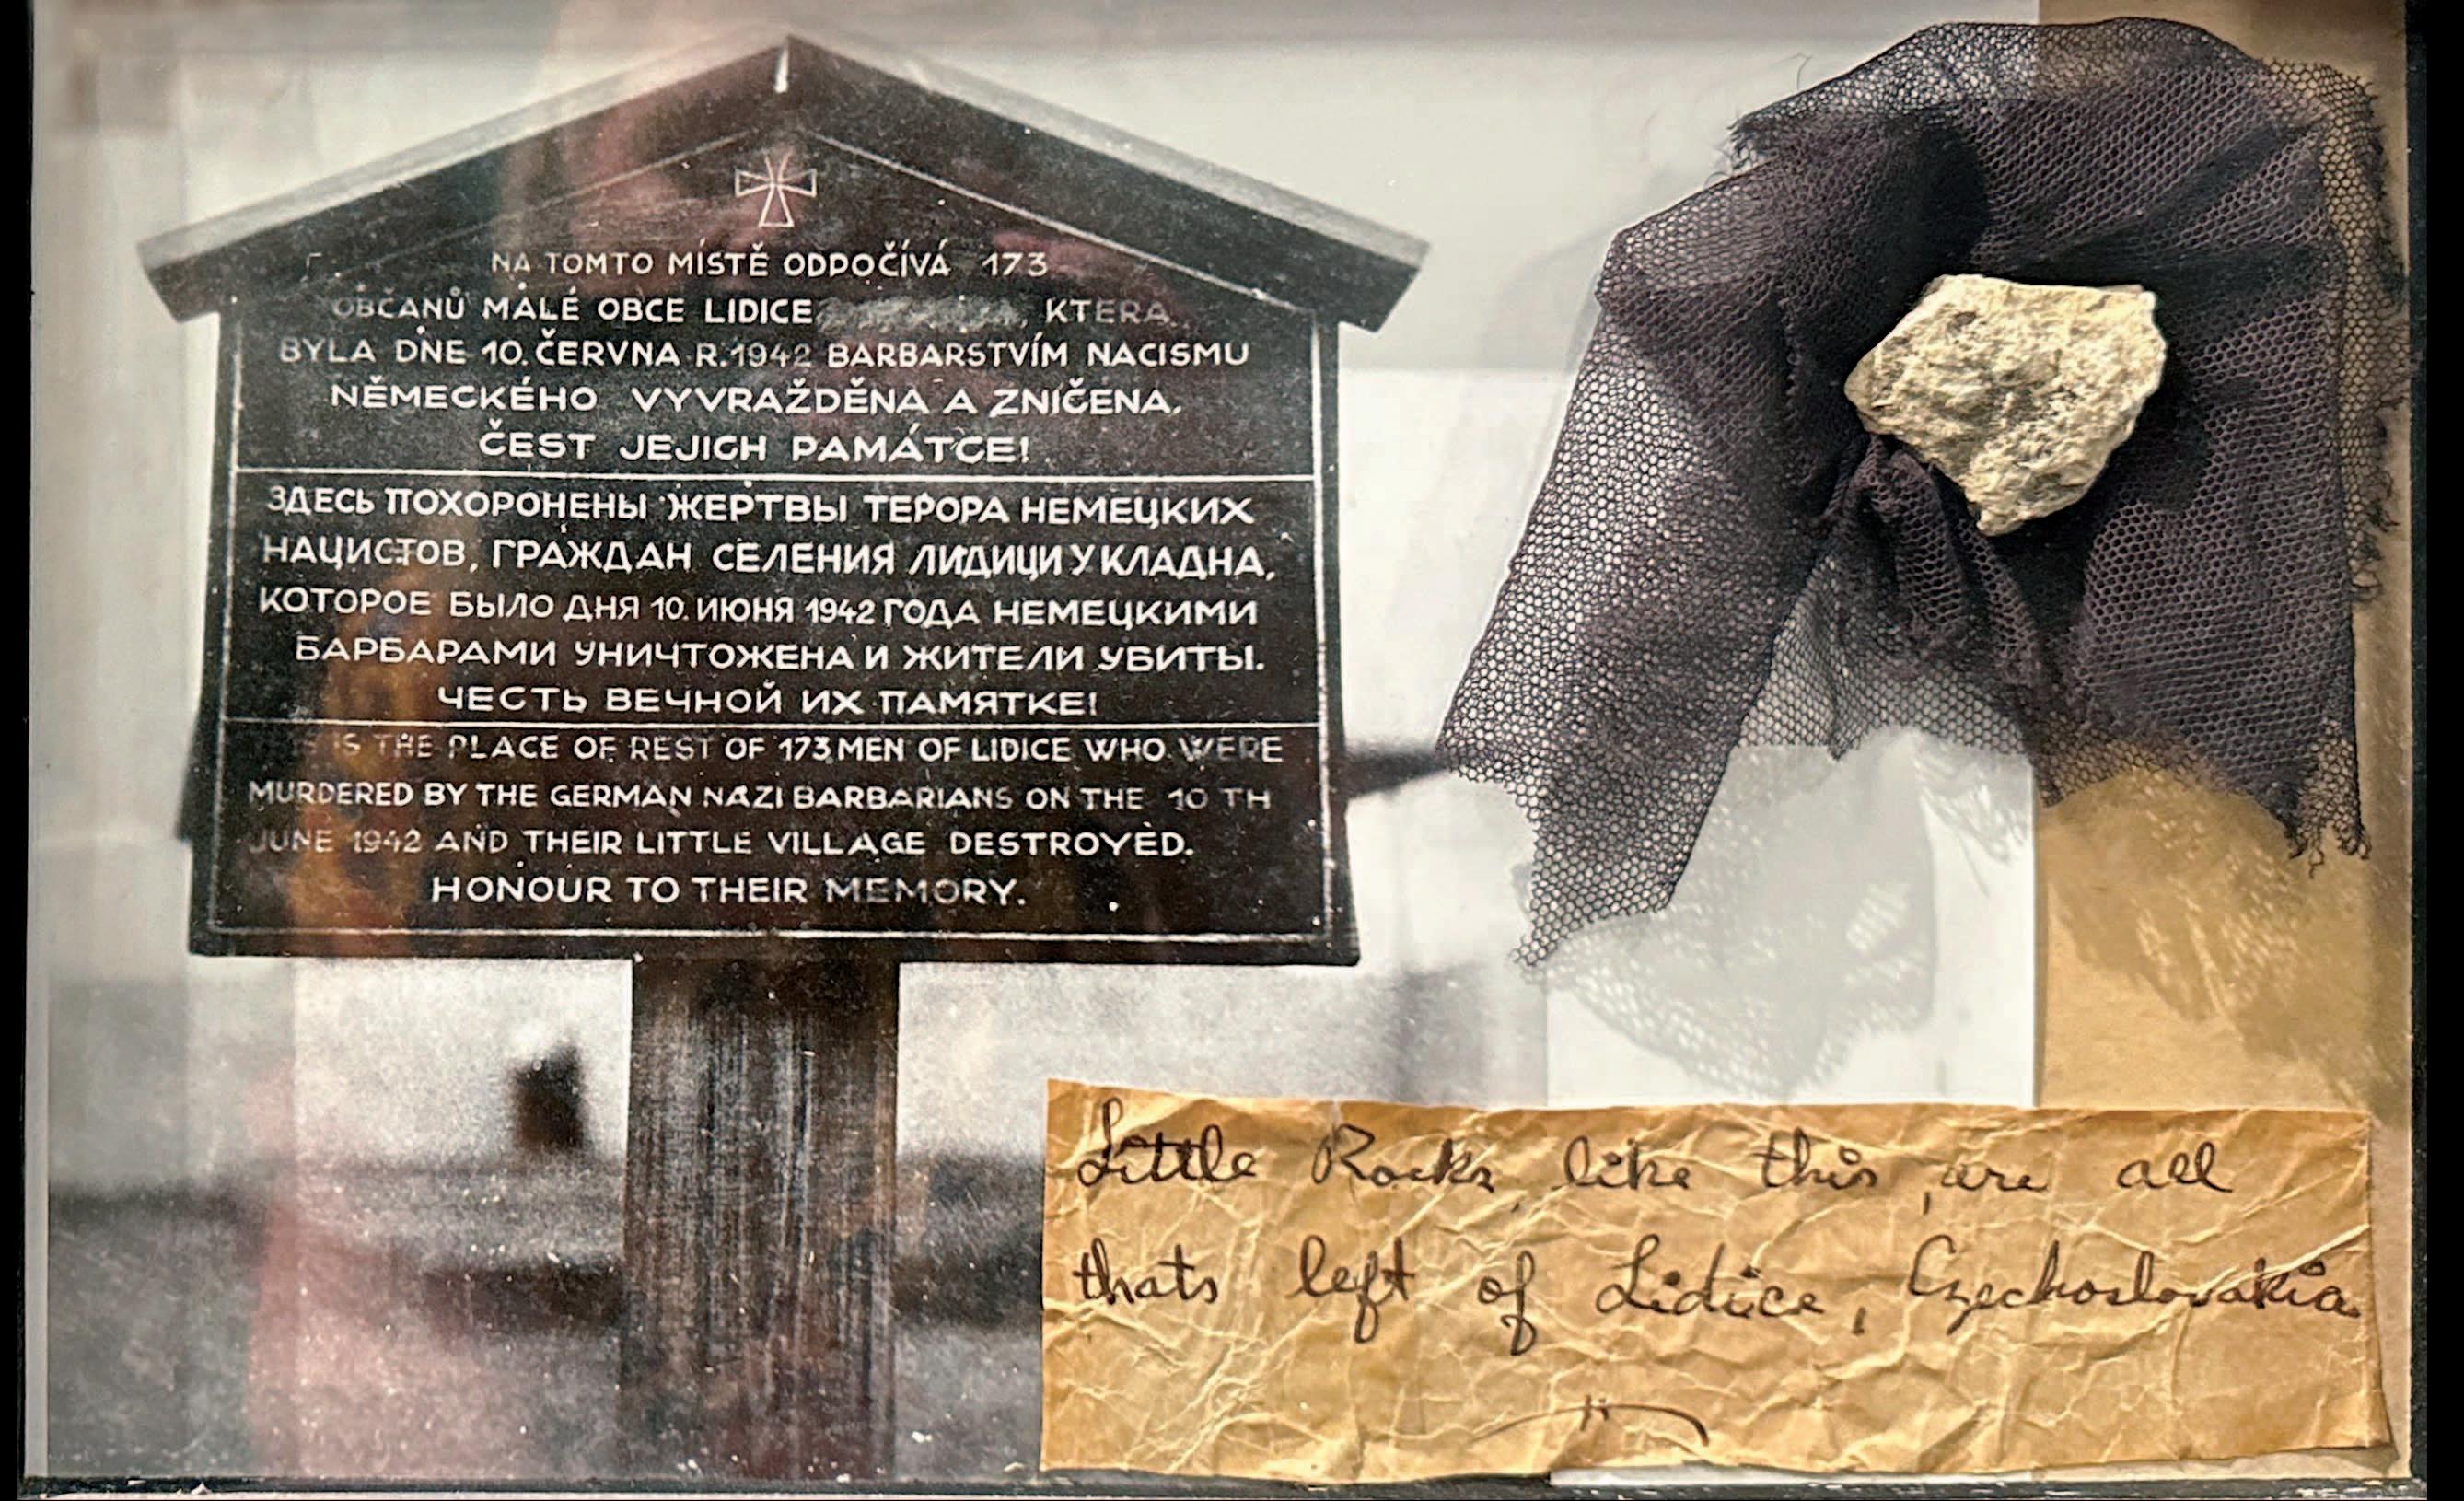 NA TOMTO MÍSTĚ ODPOČÍVÁ 173
OBČANŮ MALÉ OBCE LIDICE , KTERÁ
BYLA DNE 10. ČERVNA R. 1942 BARBARSTVÍM NACISMU
NĚMECKÉHO VYVRAŽDĚNA A ZNIČENA.
ČEST JEJICH PAMÁTCE!
ЗДЕСЬ ПОХОРОНЕНЫ ЖЕРТВЫ ТЕРОРА НЕМЕЦКИХ
НАЦИСТОВ, ГРАЖДАН СЕЛЕНИЯ ЛИДИЦИ У КЛАДНА,
КОТОРОЕ БЫЛО ДНЯ 10. ИЮНЯ 1942 ГОДА НЕМЕЦКИМИ
БАРБАРАМИ УНИЧТОЖЕНА И ЖИТЕЛИ УБИТЫ.
ЧЕСТЬ ВЕЧНОЙ ИХ ПАМЯТКЕ!
THIS IS THE PLACE OF REST OF 173 MEN OF LIDICE WHO WERE
MURDERED BY THE GERMAN NAZI BARBARIANS ON THE 10 TH
JUNE 1942 AND THEIR LITTLE VILLAGE DESTROYED.
HONOUR TO THEIR MEMORY.
Little Rocks like this, are all
thats left of Lidice, Czechoslovakia